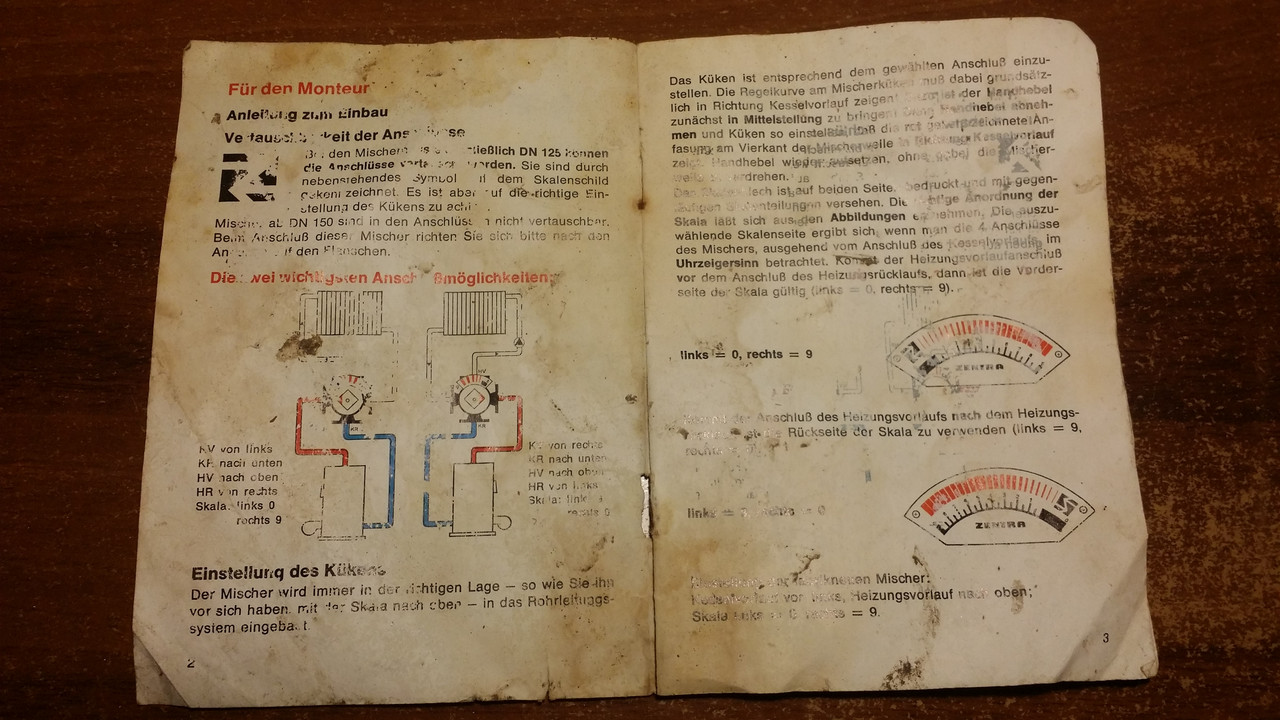 Für den Monteur
Anleitung zum Einbau
der Anschlüsse
den Mischern DN 125 können
die Anschlüsse werden. Sie sind durch
nebenstehendes Symbol dem Skalenschild
gekennzeichnet. Es ist aber auf die richtige Ein-
stellung des Kükens zu
Mischer ab DN 150 sind in den Anschlüssen nicht vertauschbar.
Beim Anschluß dieser Mischer richten Sie sich bitte nach den
auf den Flanschen.
Die zwei wichtigsten Anschlußmöglichkeiten:
HV
KR
KR
HV von links
KR nach unten
HV nach oben
HR von rechts
Skala: links 0
rechts 9
von rechts
KR nach unten
HV nach oben
HR von links
Skala: links
rechts 0
Einstellung des Kükens
Der Mischer wird immer in der richtigen Lage – so wie Sie ihn
vor sich haben, mit der Skala nach oben – in das Rohrleitungs-
system eingebaut.
2
Das Küken ist entsprechend dem gewählten Anschluß einzu-
stellen. Die Regelkurve am Mischerküken muß dabei grundsätz-
lich in Richtung Kesselvorlauf zeigen. ist der Handhebel
zunächst in Mittelstellung zu bringen. Dann Handhebel abneh-
men und Küken so einstellen, daß die rot gekennzeichnete An-
fasung am Vierkant der Mischerwelle in Richtung Kesselvorlauf
zeigt. Handhebel wieder aufsetzen, ohne dabei die Mischer-
welle verdrehen.
ist auf beiden Seiten bedruckt und mit gegen-
versehen. Die richtige Anordnung der
Skala läßt sich aus den Abbildungen entnehmen. Die auszu-
wählende Skalenseite ergibt sich, wenn man die 4 Anschlüsse
des Mischers, ausgehend vom Anschluß des Kesselvorlaufs, im
Uhrzeigersinn betrachtet. Kommt der Heizungsvorlaufanschluß
vor dem Anschluß des Heizungsrücklaufs, dann ist die Vorder-
seite der Skala gültig (links = 0, rechts = 9).
links = 0, rechts = 9
ZENTRA
der Anschluß des Heizungsvorlaufs nach dem Heizungs-
ist die Rückseite der Skala zu verwenden (links = 9,
links = rechts = 0
ZENTRA
Mischer:
von links, Heizungsvorlauf nach oben;
Skala links = 0 rechts = 9.
3